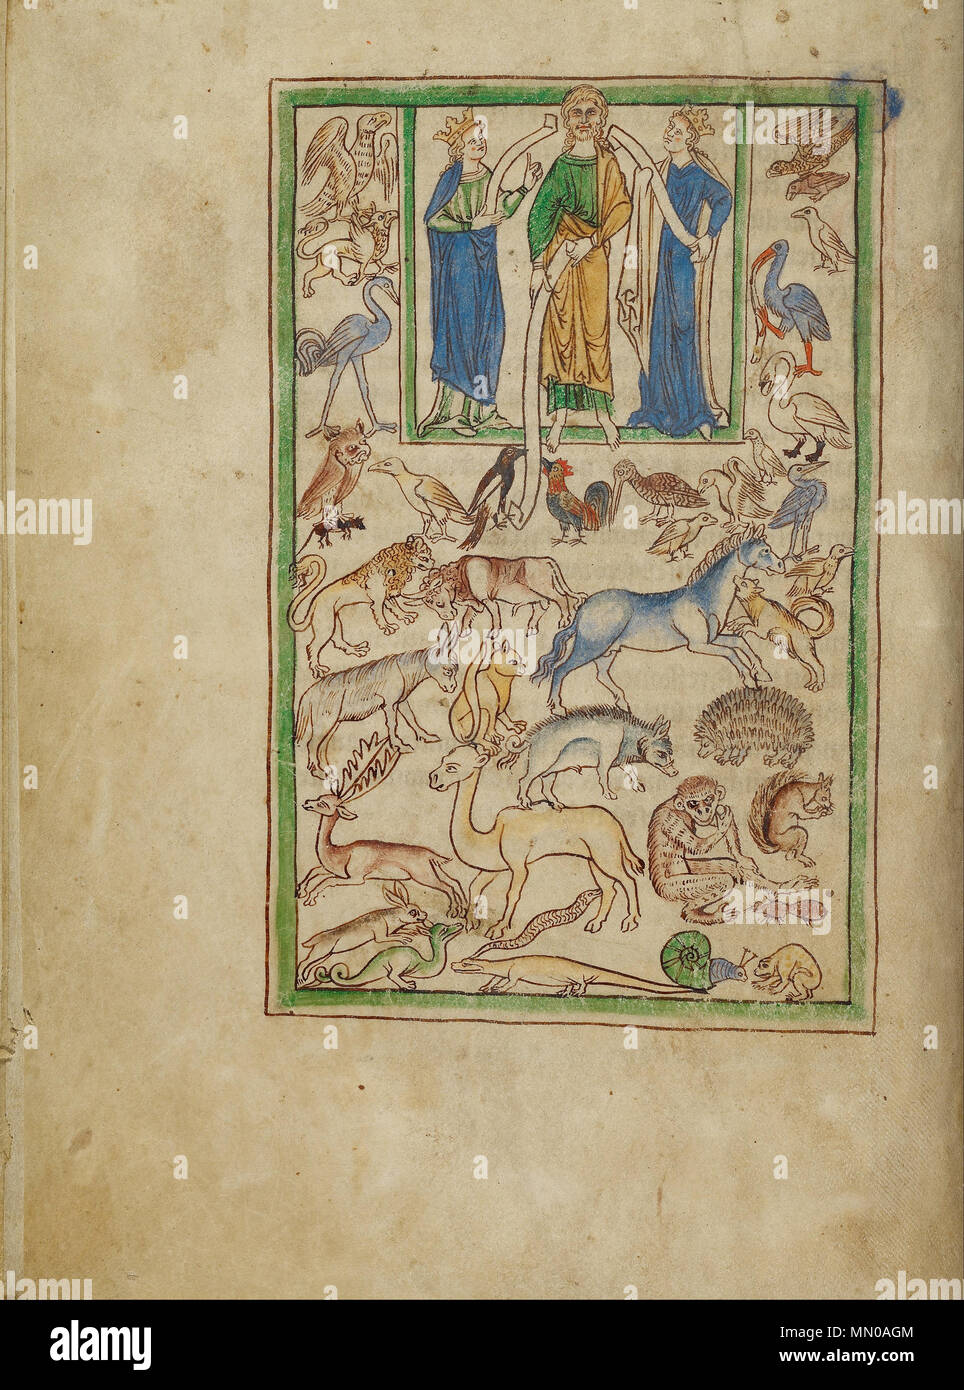 alamy
Image ID: MN0AGM
www.alamy.com